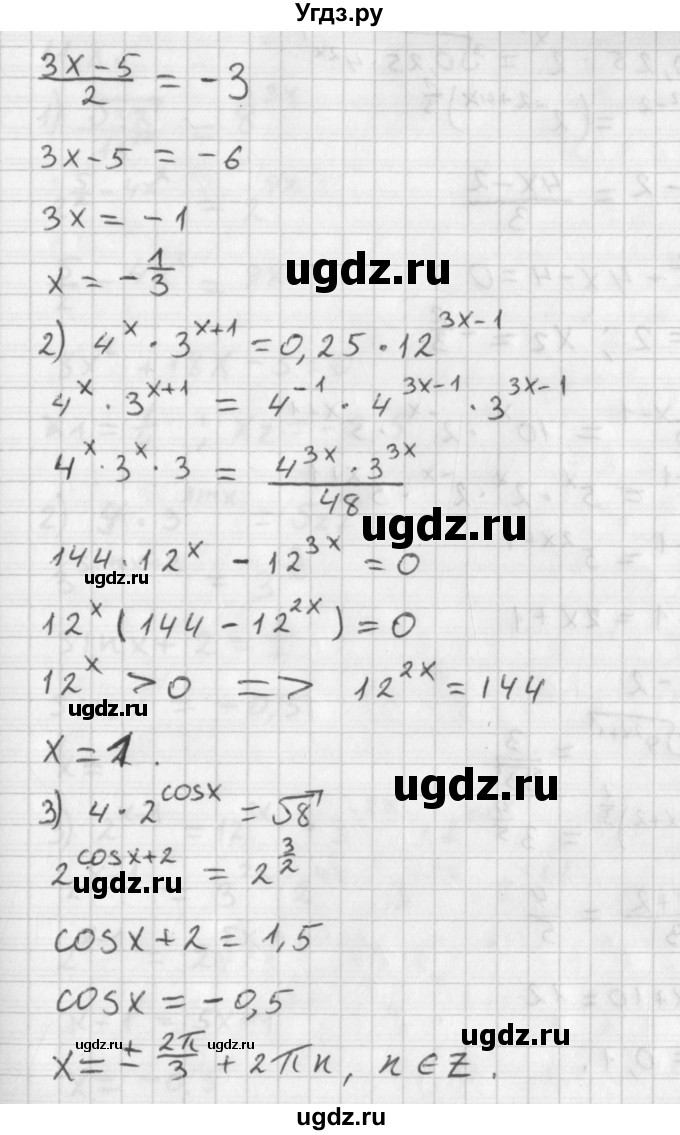 Угдз.ру
(3x-5)/2 = -3
3x-5 = -6
3x = -1
x = -1/3
ugdz.ru
2) 4^x · 3^(x+1) = 0,25 · 12^(3x-1)
4^x · 3^(x+1) = 4^(-1) · 4^(3x-1) · 3^(3x-1)
4^x · 3^x · 3 = (4^(3x) · 3^(3x))/48
ugdz.ru
144 · 12^x - 12^(3x) = 0
ugdz.ru
12^x (144 - 12^(2x)) = 0
12^x > 0 => 12^(2x) = 144
ugdz.ru
x = 1.
ugdz.ru
3) 4 · 2^(cosx) = √8
2^(cosx+2) = 2^(3/2)
ugdz.ru
cosx + 2 = 1,5
cosx = -0,5
ugdz.ru
ugdz.ru ugdz.ru
x = ± 2π/3 + 2πn, n ∈ Z.
ugdz.ru